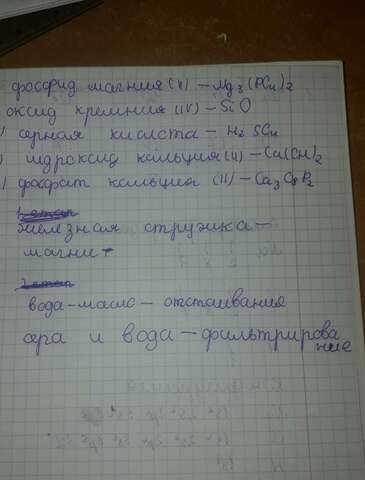 фосфид магния (II) – Mg3(PO4)2
оксид кремния (IV) – SiO
) серная кислота – H2SO4
) гидроксид кальция (II) – Ca(OH)2
) фосфат кальция (II) – Ca3O8P2
1 этап
железная стружка –
магнит
2 этап
вода-масло – отстаивания
сера и вода – фильтрирова
ние